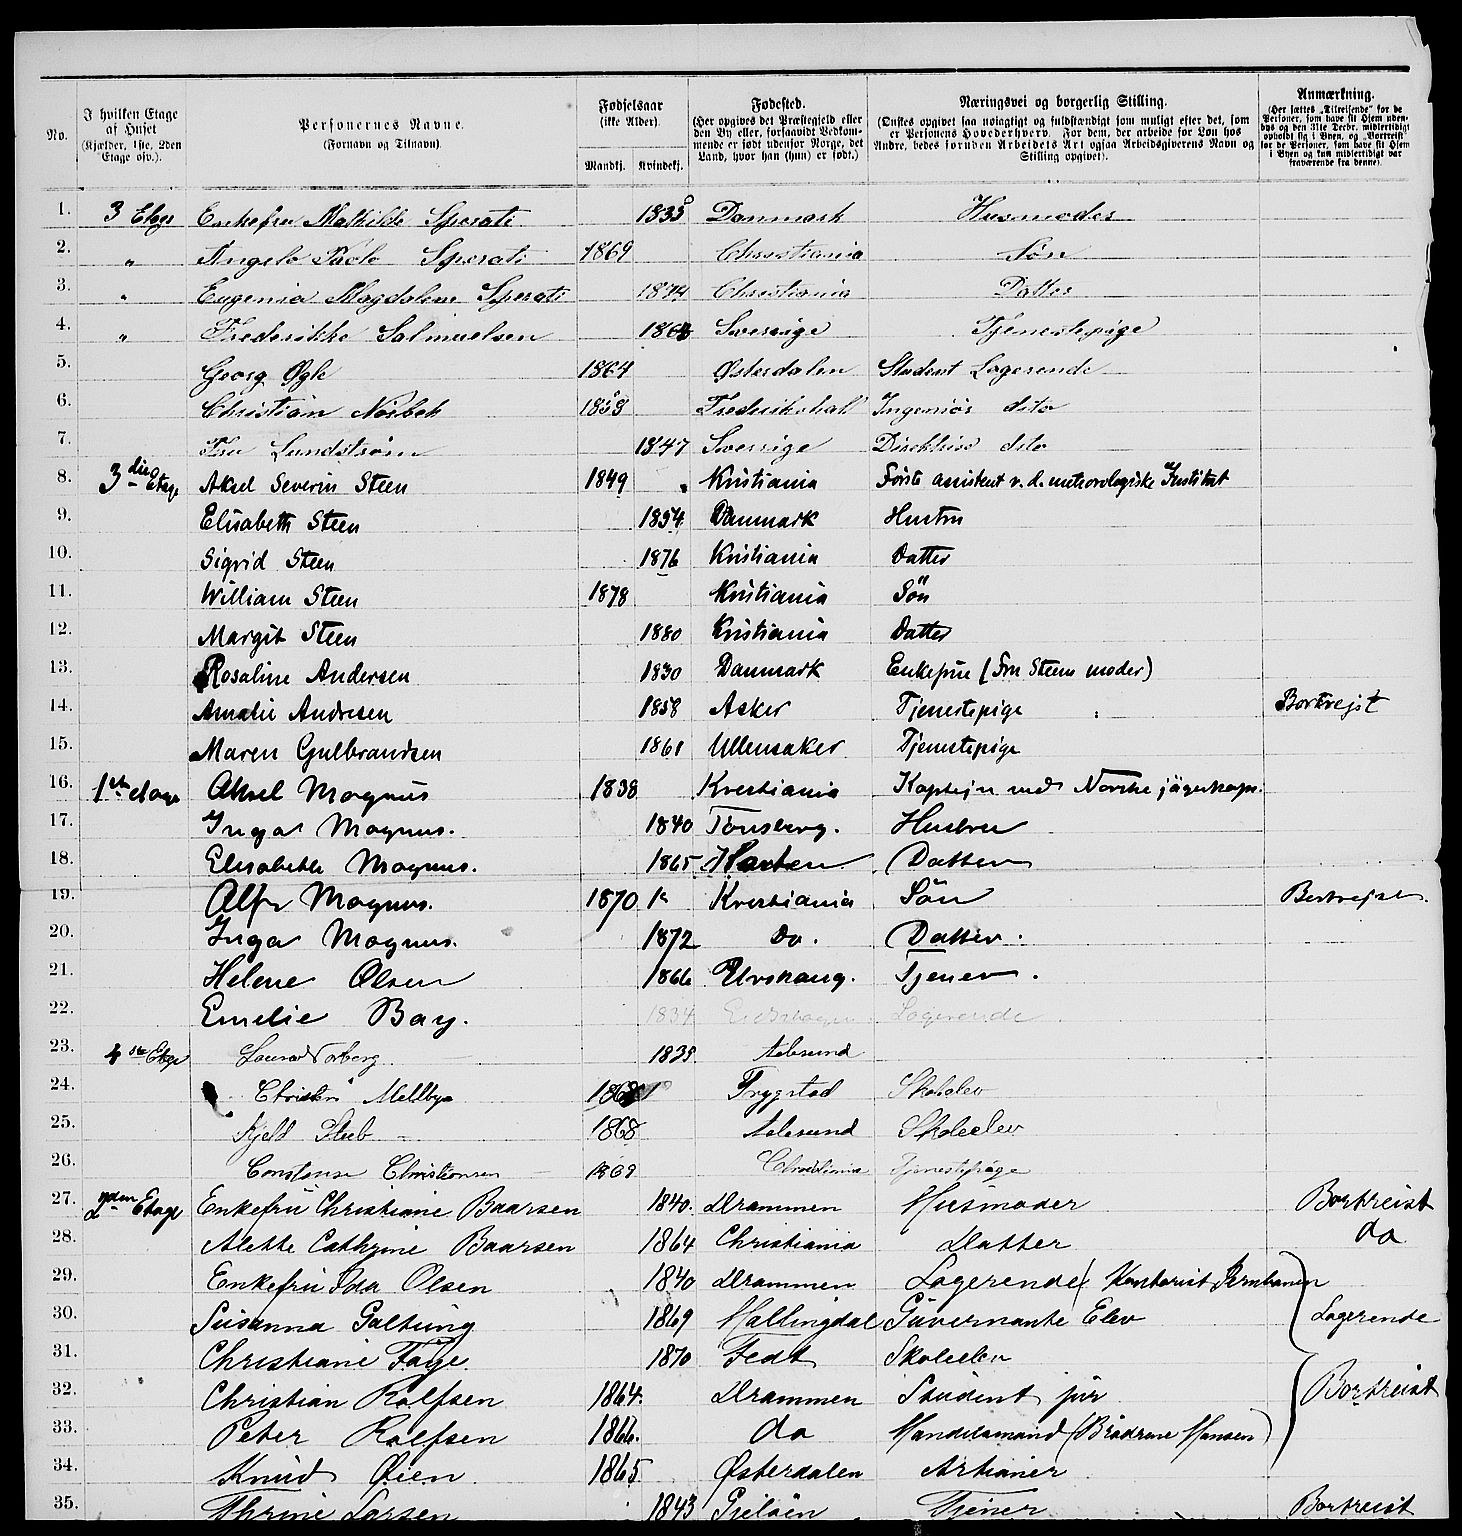 No. | I hvilken Etage af Huset (Kjælder, 1ste, 2den Etage osv.). | Personernes Navne. (Fornavn og Tilnavn). | Fødselsaar (ikke Alder). Mandkj. | Kvindekj. | Fødested. (Her opgives det Præstegjeld eller den By eller, forsaavidt Vedkommende er født udenfor Norge, det Land, hvor han (hun) er født.) | Næringsvei og borgerlig Stilling. (Ønskes opgivet saa nøiagtigt og fuldstændigt som muligt efter det, som er Personens Hovederhverv. For dem, der arbeide for Løn hos Andre, bedes foruden Arbeidets Art ogsaa Arbeidsgiverens Navn og Stilling opgivet). | Anmærkning. (Her sættes „Tilreisende“ for de Personer, som have sit Hjem udenbys og den 31te Decbr. midlertidigt opholdt sig i Byen, og „Bortreist“ for de Personer, som have sit Hjem i Byen og kun midlertidigt var fraværende fra denne).
1. 3 Etage Enkefru Mathilde Sperati 1835 Danmark Husmoder
2. " Angelo Paolo Sperati 1869 Christiania Søn
3. " Eugenia Magdalene Sperati 1874 Christiania Datter
4. " Frederikke Salmuelsen Sverrige Tjenestepige
5. Georg Øgle 1864 Østerdalen Student Logerende
6. Christian Norbek 1858 Frederikshal Ingeniør dito
7. Fru Lundstrøm 1847 Sverrige dito
8. 3die Etage Aksel Severin Steen 1849 Kristiania Første assistent v. d. meteorologiske Institut
9. Elisabeth Steen 1854 Danmark Hustru
10. Sigrid Steen 1876 Kristiania Datter
11. William Steen 1878 Kristiania Sön
12. Margit Steen 1880 Kristiania Datter
13. Rosaline Andersen 1830 Danmark Enkefrue (Fru Steens moder)
14. Amalie Andresen 1858 Asker Tjenestepige Bortrejst
15. Maren Gulbrandsen 1861 Ullensaker Tjenestepige
16. 1ste etage Aksel Magnus 1838 Kristiania Kaptejn ved Norske jägerkorps.
17. Inga Magnus. 1840 Tønsberg. Hustru
18. Elisabeth Magnus. 1865 Horten Datter
19. Alfr Magnus. 1870 Kristiania Sön Bortrejst
20. Inga Magnus. 1872 Do. Datter.
21. Helene Olsen 1866 Urskaug. Tjener.
22. Emilie Bay. 1834 Logerende
23. 4de Etage 1835 Aalesund
24. Christen Mellbye 1868 Trygstad Skoleelev
25. Kjeld Stub 1868 Aalesund Skoleelev
26. Constanse Christiansen 1869 Christiania Tjenestepige
27. 2den Etage Enkefru Christiane Baarsen 1840. Drammen Husmoder Bortreist
28. Alette Cathrine Baarsen 1864 Christiania Datter do
29. Enkefru Ida Olsen 1840 Drammen Logerende (Kontorist Jernbanen)
30. Susanna Galtung 1869 Hallingdal Guvernante Elev Logerende
31. Christiane Faye 1870 Skoleelev
32. Christian Rolfsen 1864. Drammen Student jur Bortreist
33. Peter Rolfsen 1866. do Handelsmand (Brødrene Hansen)
34. Knud Øien 1865 Østerdalen Artianer
35. Thrine Larsen 1843 Tjener Bortreist